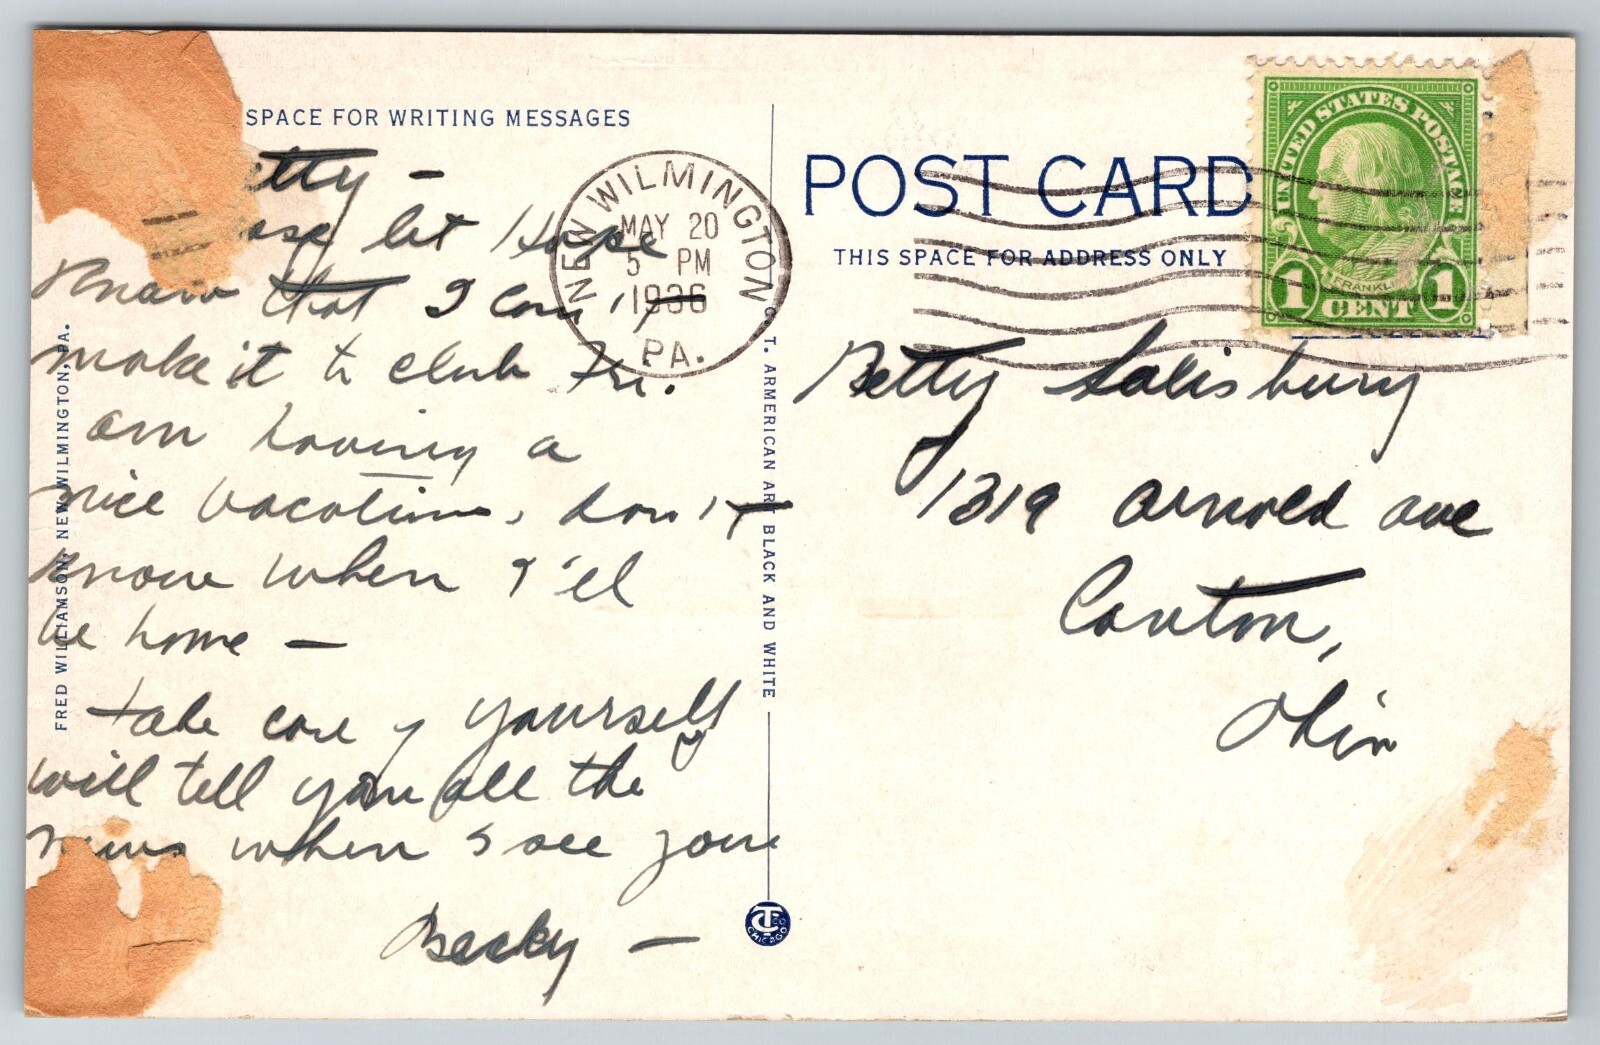 SPACE FOR WRITING MESSAGES
etty -
ase let Hope
know that I can't
make it to club Fri.
am having a
nice vacation, don't
know when I'll
be home -
take care of yourself
will tell you all the
news when I see you
Becky -
FRED WILLIAMSON, NEW WILMINGTON, PA.
NEW WILMINGTON
MAY 20
5 PM
1936
PA.
C. T. ARMERICAN ART BLACK AND WHITE
CHICAGO
POST CARD
THIS SPACE FOR ADDRESS ONLY
UNITED STATES POSTAGE
FRANKLIN
1 CENT 1
Betty Salisbury
1319 Arnold ave
Canton,
Ohio